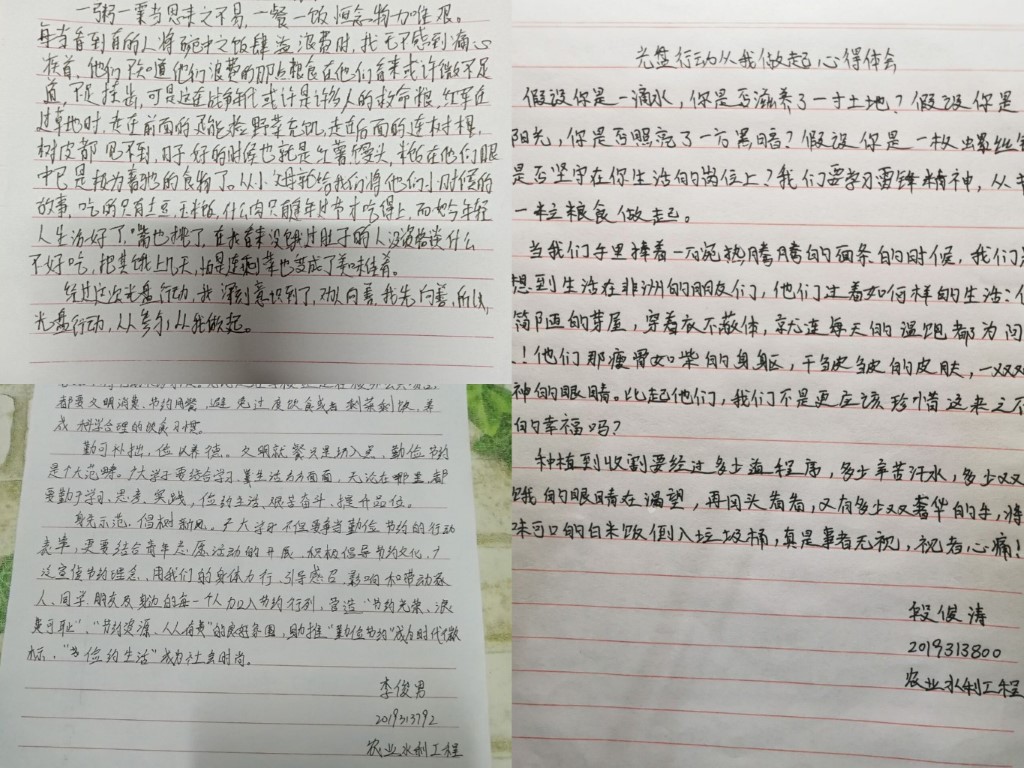 一粥一粟当思来之不易，一餐一饭恒念物力唯艰。
每当看到有的人将碗中之饭肆意浪费时，我无不感到痛心
疾首，他们不知道他们浪费的那点粮食在他们看来或许微不足
道，不足挂齿，可是这在战争年代或许是许多人的救命粮，红军过
过草地时，走在前面的还能捡野菜充饥，走在后面的连树根，
树皮都见不到，日子好的时候也就是红薯馒头，米饭在他们眼
中已是极为奢侈的食物了。从小父母就给我们讲他们小时候的
故事，吃的只有土豆，玉米饭，什么肉只有逢年过节才吃得上，而如今年轻
人生活好了，嘴也挑了，在我看来没饿过肚子的人没资格谈什么
不好吃，把其饿上几天，怕是连剩菜也变成了美味佳肴。
经过这次光盘行动，我深刻意识到了，劝人向善，我先向善，所以
光盘行动，从参与，从我做起。
都要文明消费，节约用餐，避免过度饮食或者剩菜剩饭，养
成科学合理的饮食习惯。
勤可补拙，俭以养德。文明就餐只是切入点，勤俭节约
是个大范畴。广大学子要结合学习、算生活方方面面，无论在哪里，都
要勤于学习、思考、实践，俭约生活、艰苦奋斗、提升品位。
身先示范，倡树新风。广大学子不但要争当勤俭节约的行动
表率，更要结合青年志愿活动的开展，积极倡导节约文化，广
泛宣传节约理念，用我们的身体力行，引导感召、影响和带动家
人、同学、朋友及身边的每一个人加入节约行列，营造“节约光荣、浪
费可耻”、“节约资源，人人有责”的良好氛围，助推“勤俭节约”成为时代徽
标，“节俭的生活”成为社会时尚。
李俊男
2019313792
农业水利工程
光盘行动从我做起心得体会
假设你是一滴水，你是否滋养了一寸土地？假设你是
阳光，你是否照亮了一方黑暗？假设你是一枚螺丝钉
是否坚守在你生活的岗位上？我们要学习雷锋精神，从节
一粒粮食做起。
当我们手里捧着一碗热腾腾的面条的时候，我们
想到生活在非洲的朋友们，他们过着如何样的生活：
简陋的茅屋，穿着衣不蔽体，就连每天的温饱都为问
！他们那瘦骨如柴的身躯，干皱皱的皮肤，一双双
神的眼睛。比起他们，我们不是更应该珍惜这来之不
的幸福吗？
种植到收割要经过多少道程序，多少辛苦汗水，多少双
饿的眼睛在渴望，再回头看看，又有多少双奢华的手，将
味可口的白米饭倒入垃圾桶，真是事者无视，视者心痛！
段俊涛
2019313800
农业水利工程